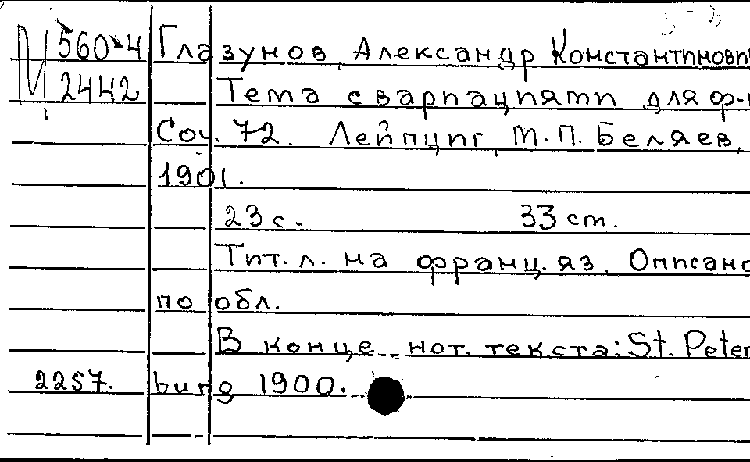 М 560-4 Глазунов, Александр Константинови
2442 Тема с вариациями для ф-
Соч. 72. Лейпциг, М.П. Беляев,
1901.
23 с. 33 cm.
Тит. л. на франц. яз. Описано
по обл.
В конце нот. текста: St. Peter
2257. burg 1900.